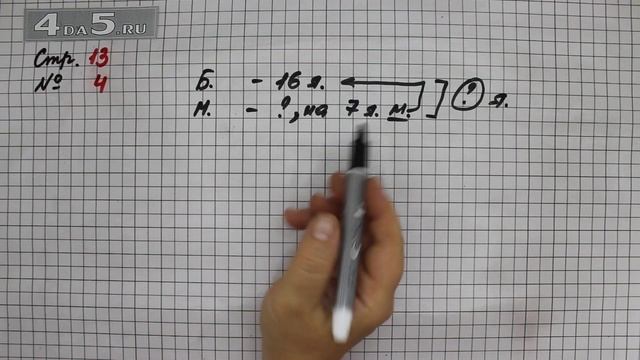 4DA5.RU
Стр. 13
№ 4
Б. - 16 я.
М. - ?, на 7 я. м. ? я.